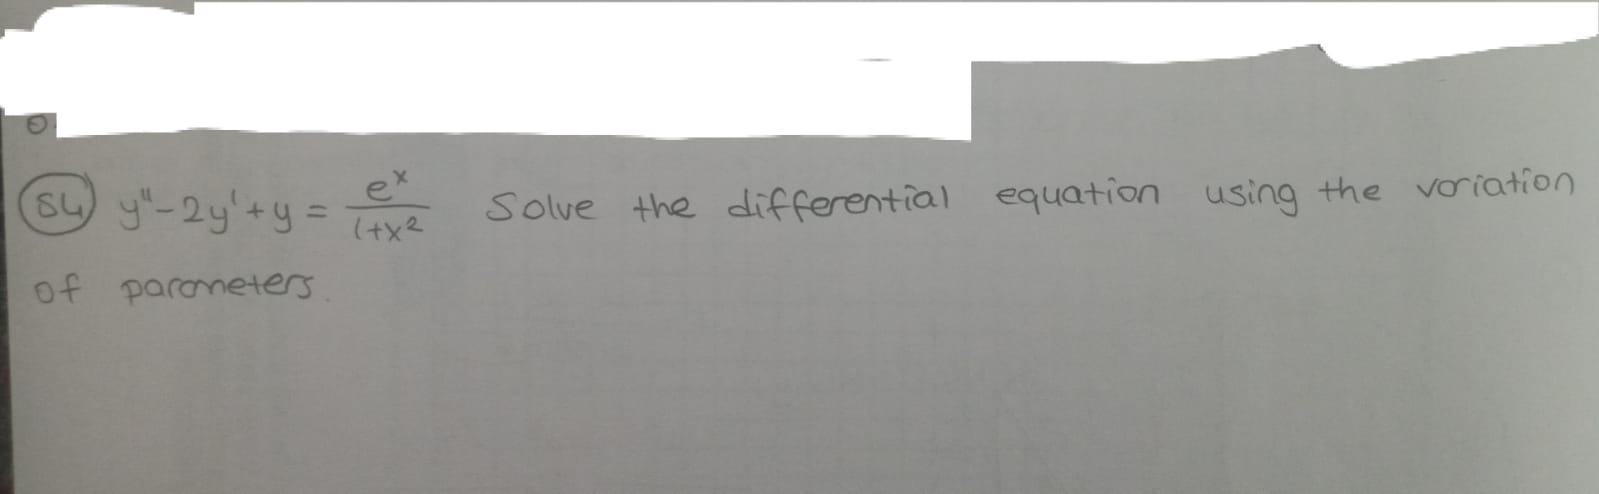 S4) y"-2y'+y = e^x/(1+x^2) Solve the differential equation using the variation
of parameters.